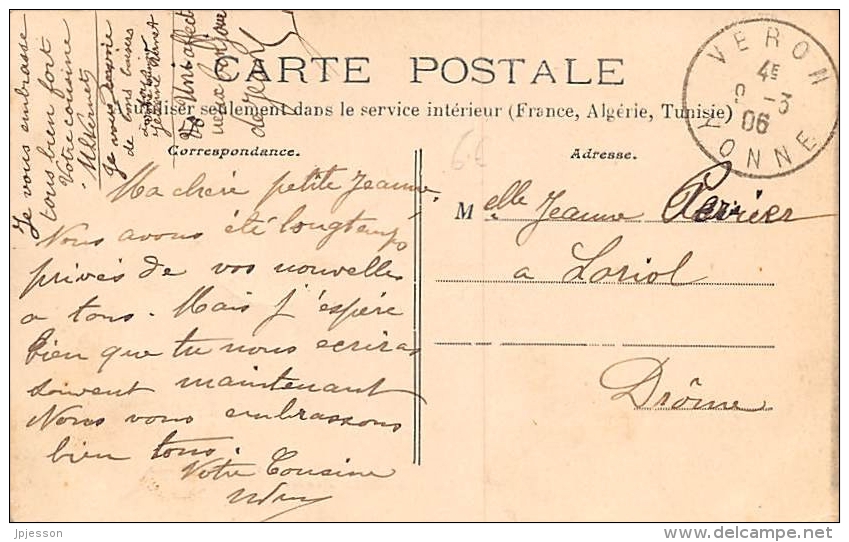 CARTE POSTALE
utiliser seulement dans le service intérieur (France, Algérie, Tunisie)
Correspondance.
Adresse.
VERON
4E
9 -3
06
YONNE
6€
Ma chère petite Jeanne,
Nous avons été longtemps
privés de vos nouvelles
a tous. Mais j'espère
bien que tu nous ecriras
souvent maintenant
Nous vous embrassons
bien tous.
Votre Cousine
Melle Jeanne
a Loriol
Drôme
Je vous embrasse
tous bien fort
Votre cousine
Je vous envoie
de bons baisers
jpjesson
www.delcampe.net